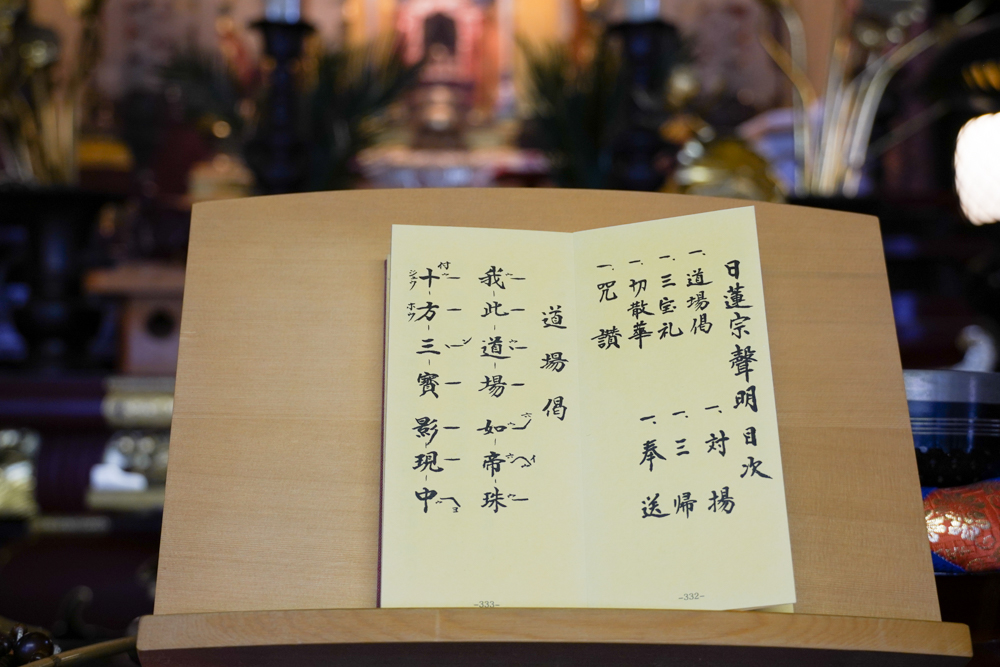 日蓮宗聲明目次
一、道場偈
一、三宝礼
一、切散華
一、咒讃
一、対揚
一、三帰
一、奉送
-332-
道場偈
我此道場如帝珠
十方三寶影現中
付
ジッ
ホウ
-333-